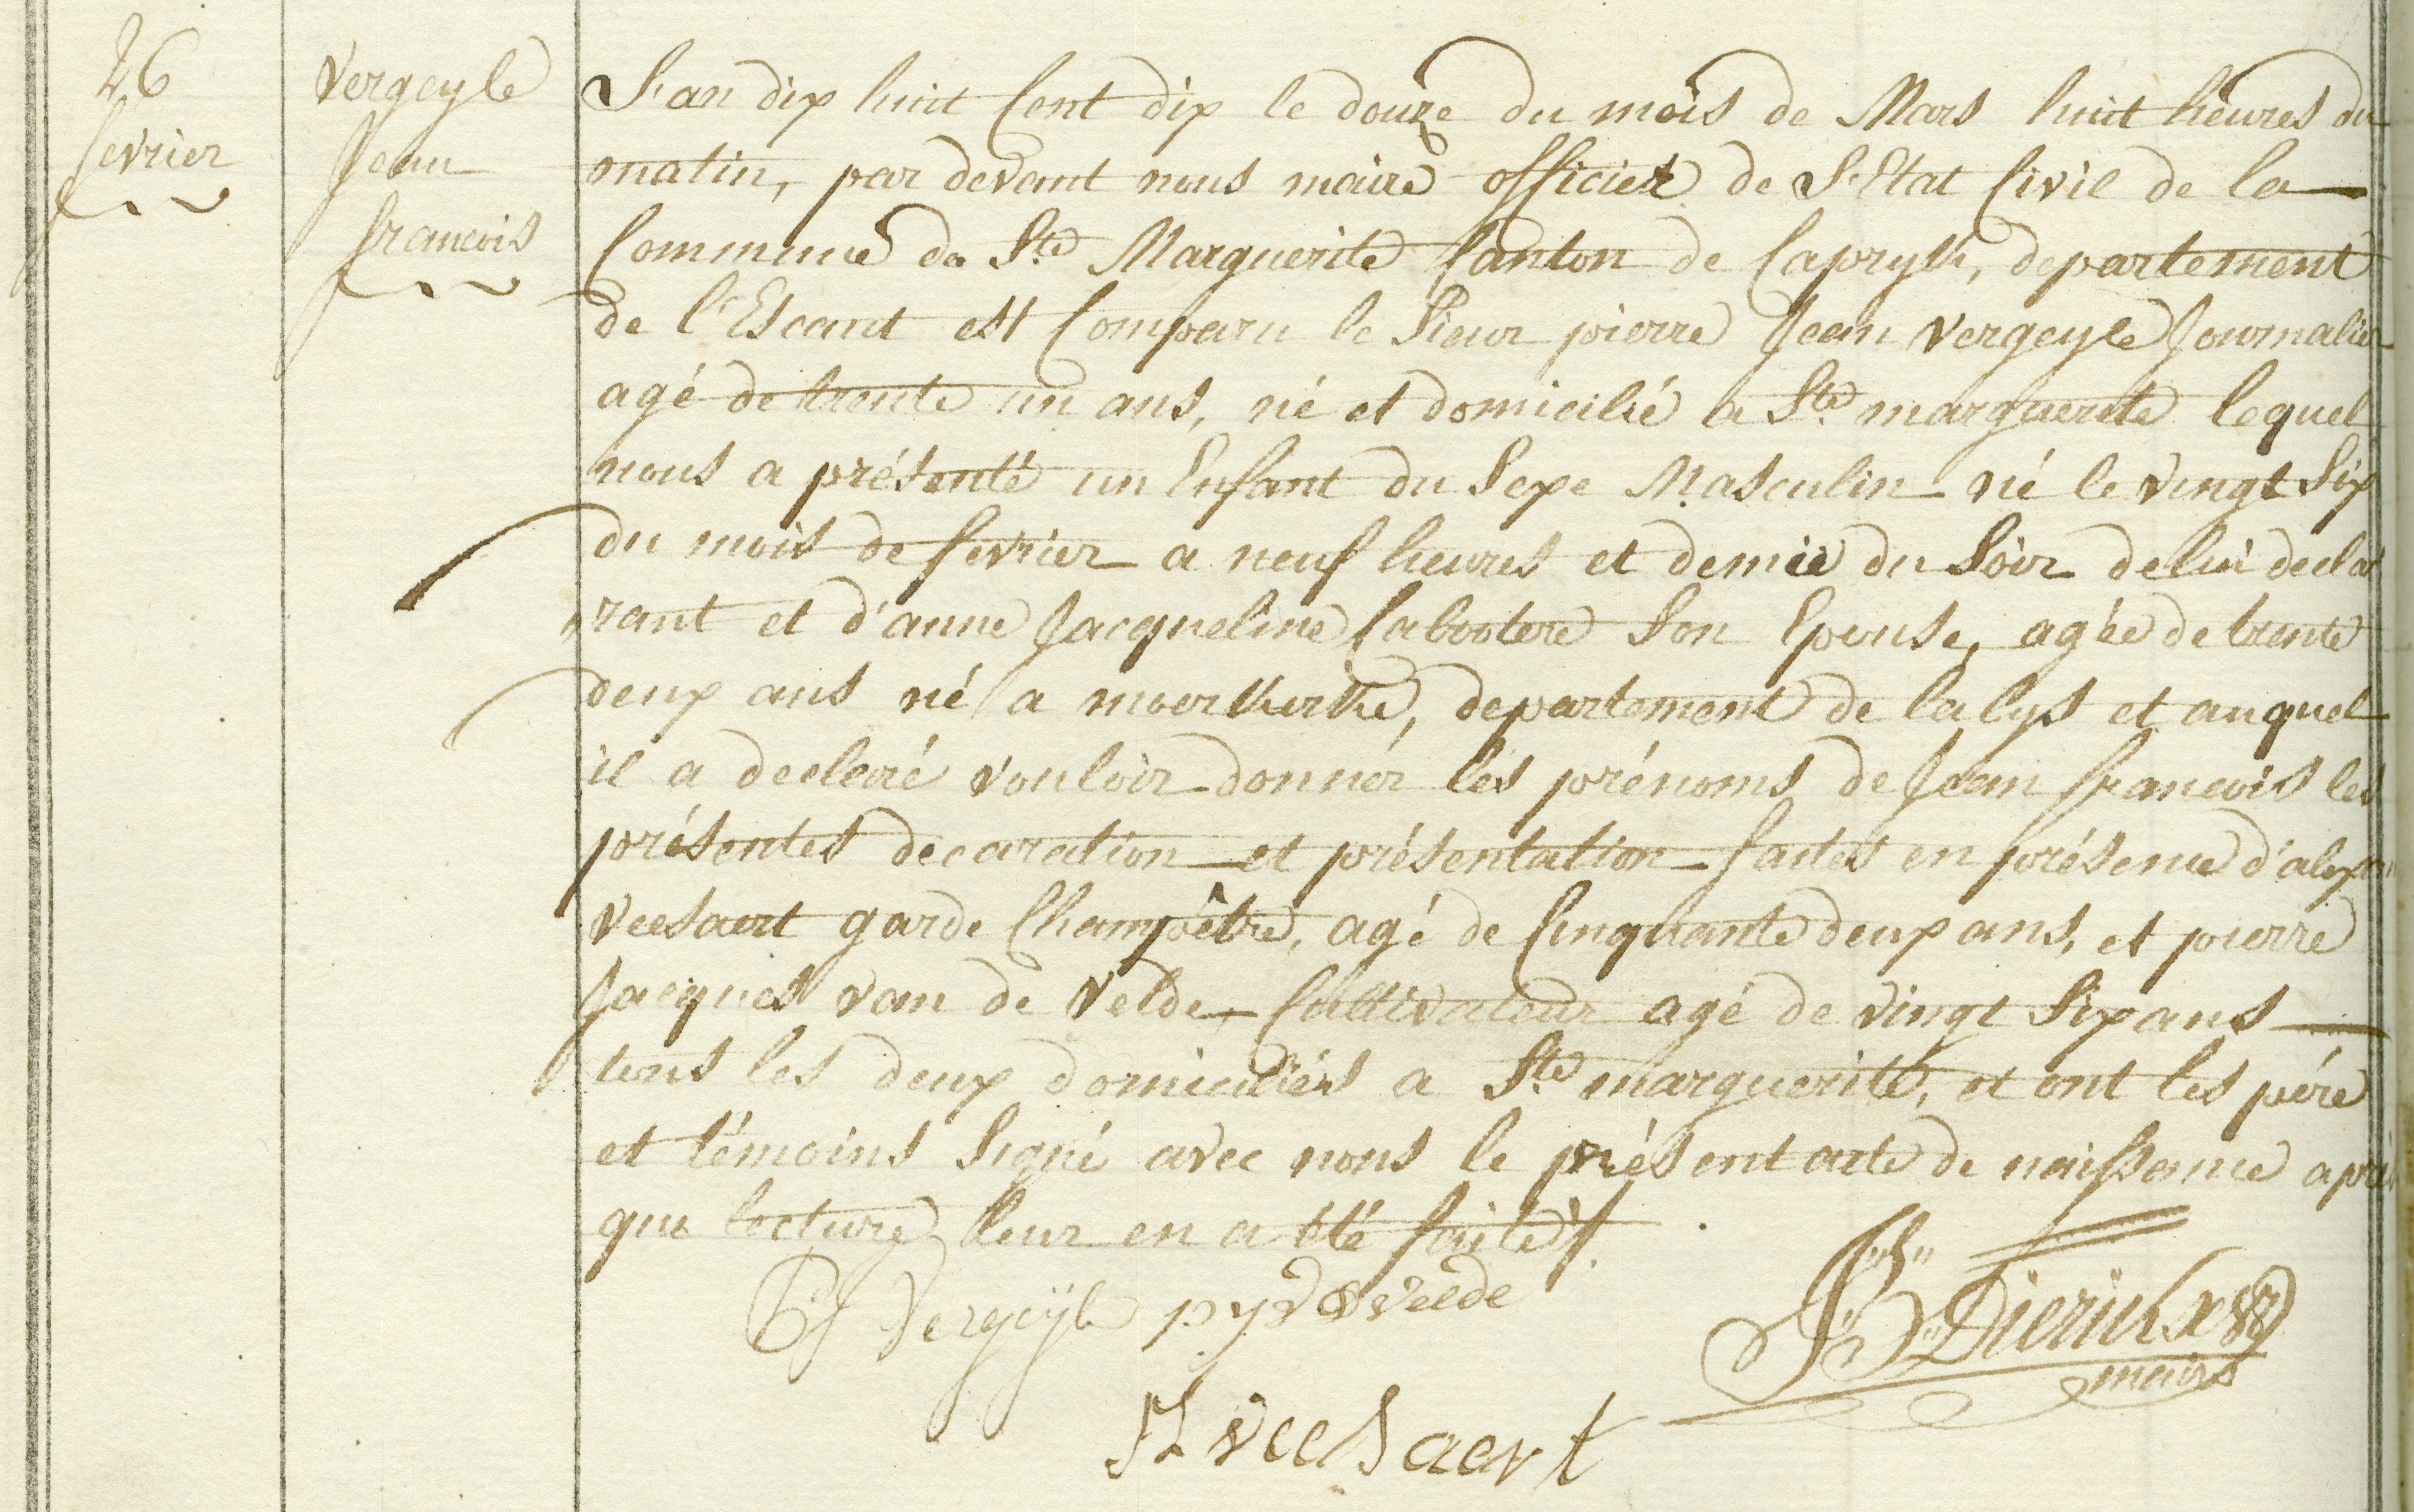 26
fevrier
Vergeyle
Jean
francois
L'an dix huit Cent dix le douze du mois de Mars huit heures du
matin, par devant nous maire officier de L'Etat Civil de la
Commune de Ste Marguerite Canton de Capryk, departement
de l'Escaut est Comparu le Sieur pierre Jean Vergeyle Journalier
agé de trente un ans, né et domicilié a Ste marguerite lequel
nous a présenté un Enfant du Sexe Masculin né le vingt Six
du mois de fevrier a neuf heures et demie du Soir de lui decla
rant et d'anne Jacqueline Cabootere Son Epouse, agée de trente
deux ans né a moerkerke, departement de la lys et auquel
il a declaré vouloir donner les prénoms de Jean francois les
présentes decaration et présentation faites en présence
Veesaert garde Champêtre, agé de Cinquante deux ans, et pierre
Jacques van de Velde, Cultivateur agé de vingt Six ans
tous les deux domiciliés a Ste marguerite, et ont les pére
et témoins Signé avec nous le présent acte de naissance après
que lecture leur en a été faite ./.
PJ Vergeÿle
Dierickx
maire
Veesaert